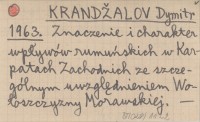 KRANDŽALOV Dymitr
1963. Znaczenie i charakter
wpływów rumuńskich w Kar-
patach Zachodnich ze szcze-
gólnym uwzględnieniem Wo-
łoszczyzny Morawskiej. —